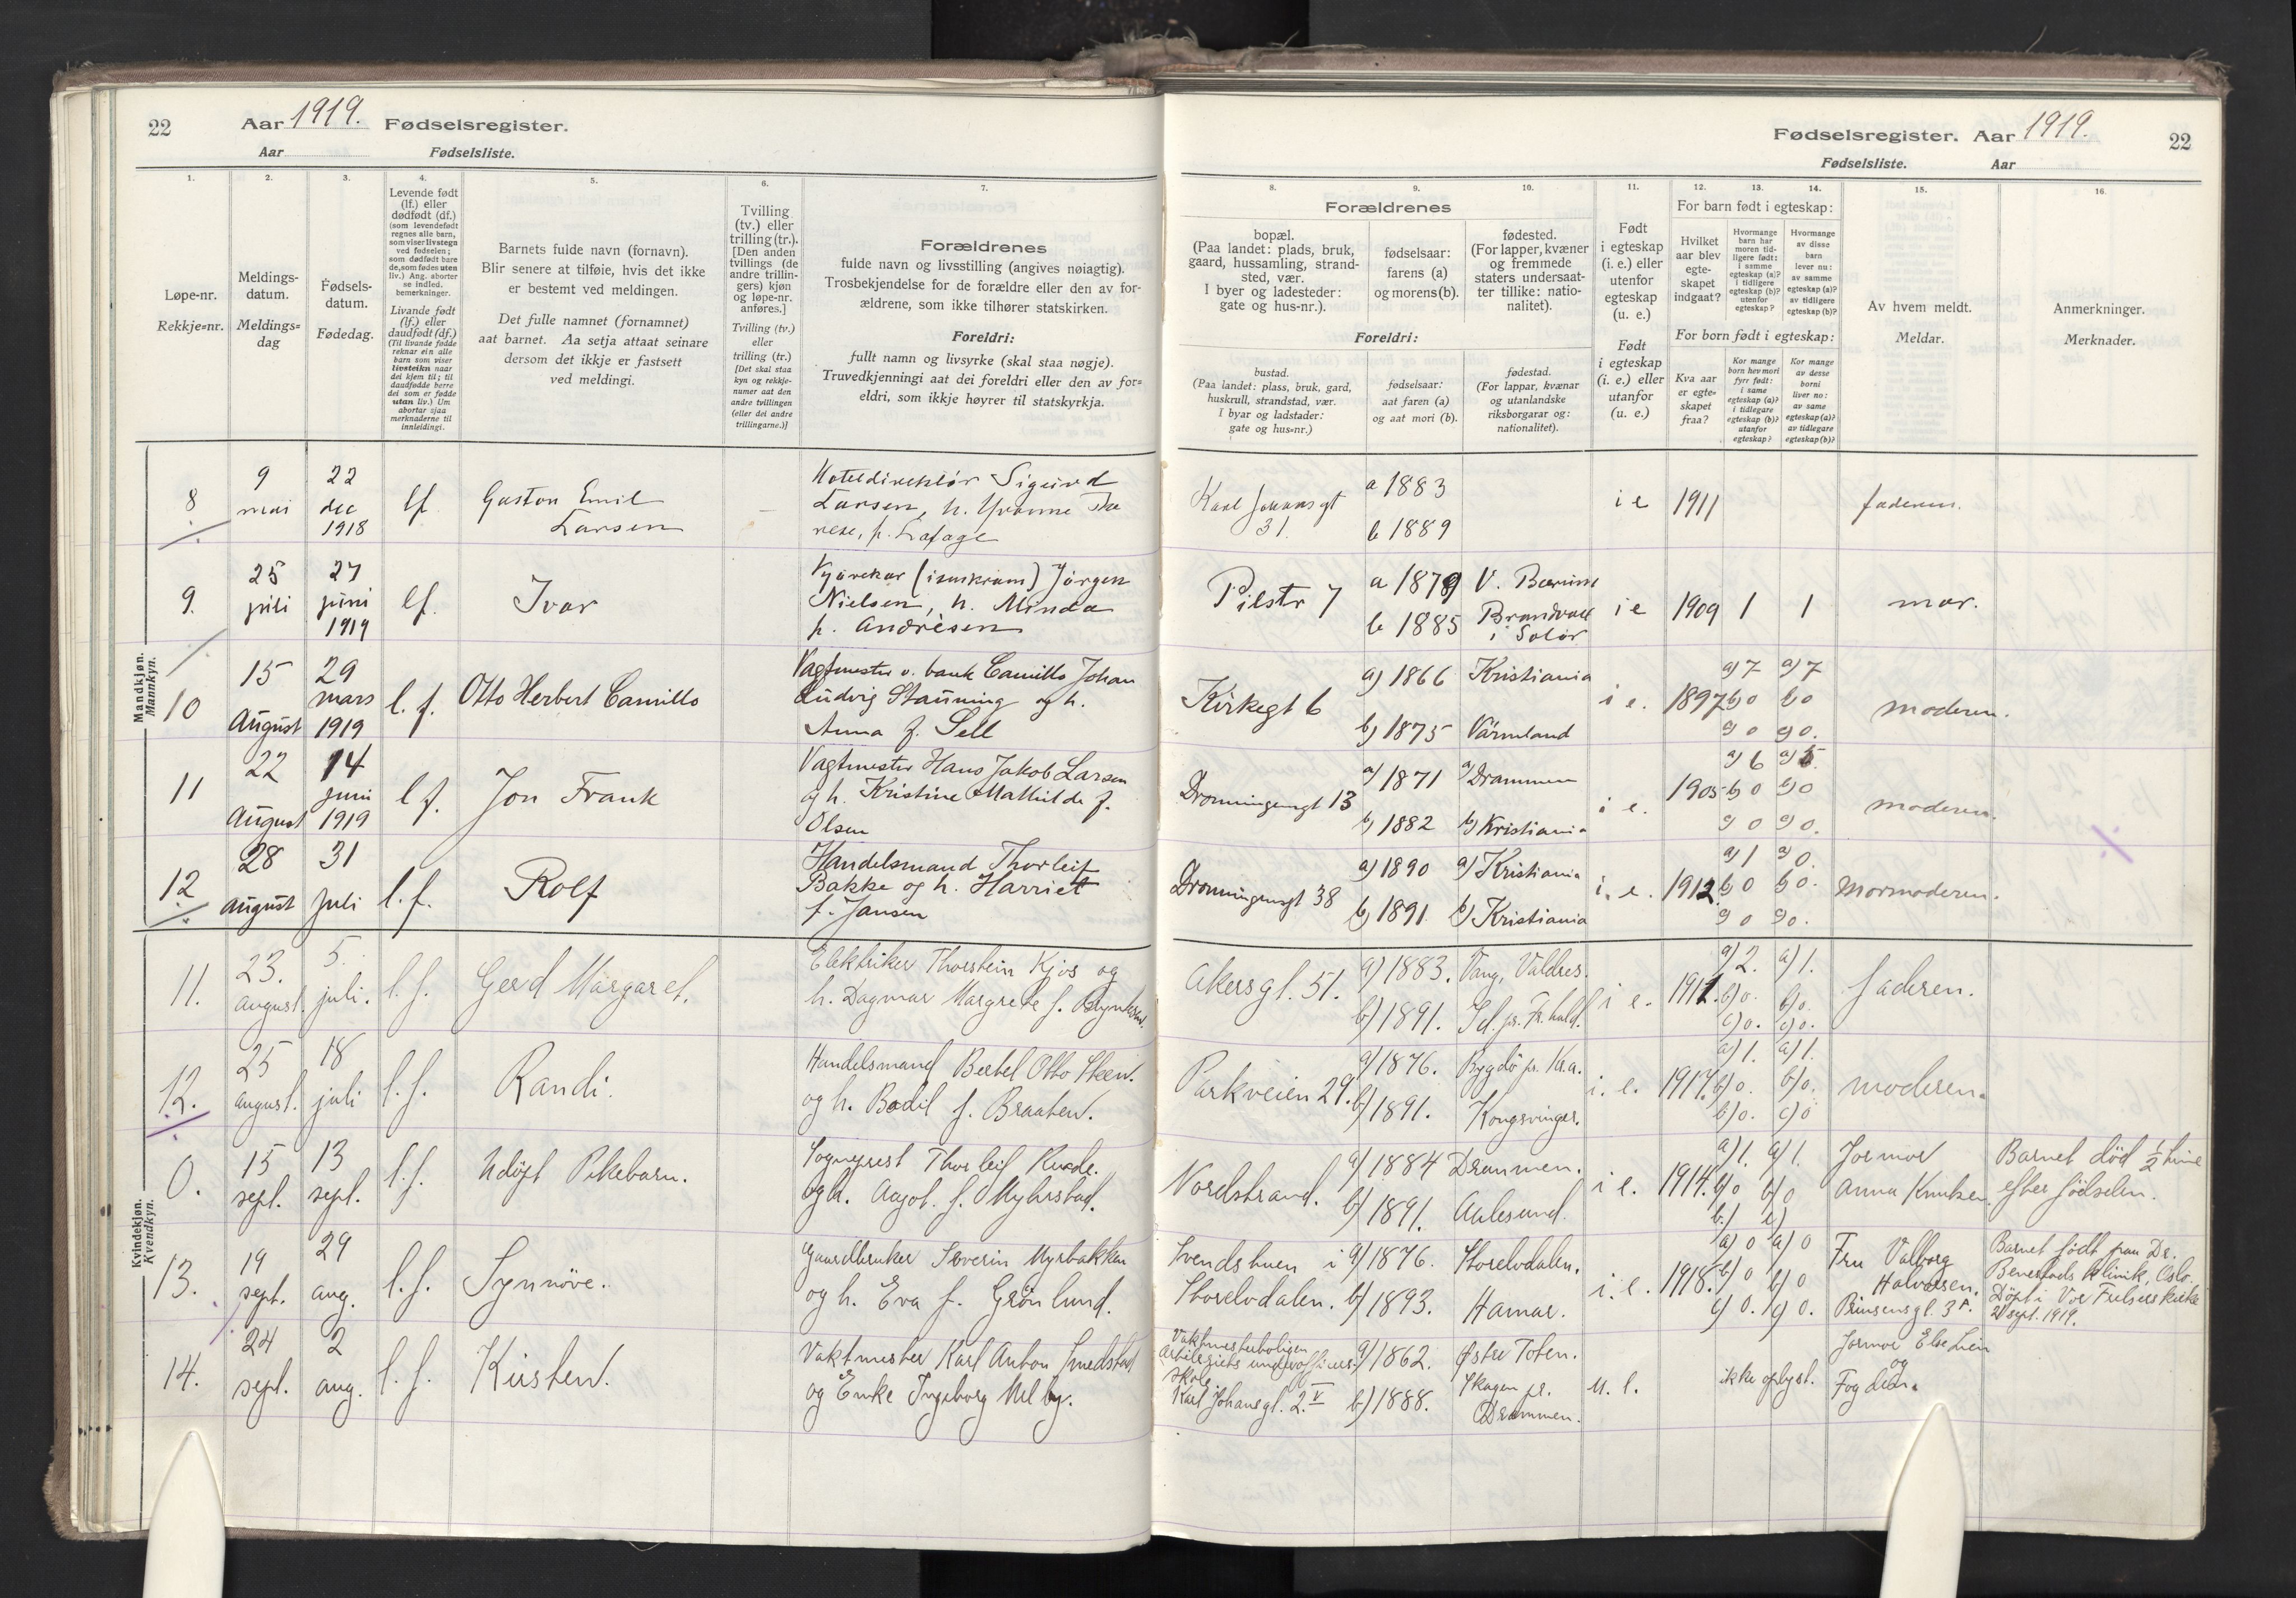 22 Aar 1919. Fødselsregister.
Aar Fødselsliste.
Fødselsregister. Aar 1919. 22
Fødselsliste. Aar
1.
Løpe-nr.
Rekkje=nr.
2.
Meldings-
datum.
Meldings=
dag
3.
Fødsels-
datum.
Fødedag.
4.
Levende født
(lf.) eller
dødfødt (df.)
(som levendefødt
regnes alle barn,
som viser livstegn
ved fødselen;
som dødfødt bare
de, som fødes uten
liv.) Ang. aborter
se indled.
bemerkninger.
Livande født
(lf.) eller
daudfødt (df.)
(Til livande fødde
reknar ein alle
barn som viser
livsteikn naar
dei kjem til; til
daudfødde berre
dei som er fødde
utan liv.) Um
abortar sjaa
merknaderne til
innleidingi.
5.
Barnets fulde navn (fornavn).
Blir senere at tilføie, hvis det ikke
er bestemt ved meldingen.
Det fulle namnet (fornamnet)
aat barnet. Aa setja attaat seinare
dersom det ikkje er fastsett
ved meldingi.
6.
Tvilling
(tv.) eller
trilling (tr.).
[Den anden
tvillings (de
andre trillin-
gers) kjøn
og løpe-nr.
anføres.]
Tvilling (tv.)
eller
trilling (tr.)
[Det skal staa
kyn og rekkje-
numer aat den
andre tvillingen
(eller dei andre
trillingarne.)]
7.
Forældrenes
fulde navn og livsstilling (angives nøiagtig).
Trosbekjendelse for de forældre eller den av for-
ældrene, som ikke tilhører statskirken.
Foreldri:
fullt namn og livsyrke (skal staa nøgje).
Truvedkjenningi aat dei foreldri eller den av for=
eldri, som ikkje høyrer til statskyrkja.
8. 9. 10.
Forældrenes
bopæl.
(Paa landet: plads, bruk,
gaard, hussamling, strand-
sted, vær.
I byer og ladesteder:
gate og hus-nr.).
fødselsaar:
farens (a)
og morens (b).
fødested.
(For lapper, kvæner
og fremmede
staters undersaat-
ter tillike: natio-
nalitet).
Foreldri:
bustad.
(Paa landet: plass, bruk, gard,
huskrull, strandstad, vær.
I byar og ladstader:
gate og hus=nr.)
fødselsaar:
aat faren (a)
og aat mori (b).
fødestad.
(For lappar, kvænar
og utanlandske
riksborgarar og:
nationalitet).
11.
Født
i egteskap
(i. e.) eller
utenfor
egteskap
(u. e.)
Født
i egteskap
(i. e.) eller
utanfor
(u. e.)
12. 13. 14.
For barn født i egteskap:
Hvilket
aar blev
egte-
skapet
indgaat?
Hvormange
barn har
moren tid-
ligere født:
i samme
egteskap (a)?
i tidligere
egteskap (b)?
utenfor
egteskap?
Hvormange
av disse
barn
lever nu:
av samme
egteskap (a)?
av tidligere
egteskap (b)?
For born født i egteskap:
Kva aar
er egte=
skapet
fraa?
Kor mange
born hev mori
fyrr født:
i same
egteskap (a)?
i tidlegare
egteskap (b)?
utanfor
egteskap?
Kor mange
av desse
borni
liver no:
av same
egteskap (a)?
av tidlegare
egteskap (b)?
15.
Av hvem meldt.
Meldar.
16.
Anmerkninger.
Merknader.
Mandkjøn.
Mannkyn.
8 9 mai 22 dec 1918 lf. Gaston Emil Larsen
Hoteldirektör Sigurd
Larsen, h. Yvonne The
rese, f. Lafage
Karl Johans gt 31. a 1883 b 1889 i e 1911 faderen.
9. 25 juli 27 juni 1919 lf. Ivar
Jörgen
Nielsen, h. Minda
f. Andresen
Pilestr 7 a 1879 V. Bærum b 1885 Brandvall i Solör i e 1909 1 1 mor.
10 15 August 29 mars 1919 l. f. Otto Herbert Camillo
Vagtmester v. bank Camillo Johan
Ludvig Stauning og h.
Anna f. Sell
Kirkegt 6 a) 1866 Kristiania b) 1875 Värmland i e. 1897 a) 7 a) 7 b) 0 b) 0 c) 0 c) 0. moderen.
11 22 August 14 juni 1919 l f. Jon Frank
Vagtmester Hans Jakob Larsen
og h. Kristine Mathilde f.
Olsen
Dronningensgt 13 a) 1871 a) Drammen b) 1882 b) Kristiania i e. 1905 a) 6 a) 5 b) 0 b) 0 c) 0 c) 0. moderen.
12 28 August 31 Juli l. f. Rolf
Handelsmand Thorleif
Bakke og h. Harriet
f. Jansen
Dronningensgt 38 a) 1890 a) Kristiania b) 1891 b) Kristiania i. e. 1912 a) 1 a) 0. b) 0 b) 0. c) 0 c) 0. Mormoderen.
Kvindekjøn.
Kvendkyn.
11. 23. august. 5. juli. l. f. Gerd Margaret.
Elektriker Thorstein Kjos og
h. Dagmar Margrete f.
Akersgt. 51. a) 1883. Vang, Valdres. b) 1891. Id. pr. Fr.hald. i e. 1911. a) 2. a) 1. b) 0. b) 0. c) 0. c) 0. faderen.
12. 25 august. 18 juli l. f. Randi.
Handelsmand Bertel Otto Steen.
og h. Bodil f. Braaten.
Parkveien 29. a) 1876. Bygdö pr. Kr.a. b) 1891. Kongsvinger. i. e. 1917. a) 1. a) 1. b) 0. b) 0. b) 0. c) 0 moderen.
0. 15 sept. 13 sept. l. f. Udöpt Pikebarn.
Sogneprest Thorleif
og h. Aagot. f. Myhrstad.
Nordstrand. a) 1884 Drammen. b) 1891. Aalesund. i e. 1914. a) 1. a) 1. b) 0 b) 0 b) c) Jormor Anna Knutsen
Barnet död ½ time
efter födselen.
13. 19 sept. 29 aug. l. f. Synnöve.
Gaardbruker Severin Myrbakken
og h. Eva f. Grönlund.
Svendshuen i Storelvdalen. a) 1876. Storelvdalen. b) 1893. Hamar. i. e. 1918. a) 0 a) 0 b) 0 b) 0 c) 0. c) 0. Fru Valborg Halvorsen. Prinsensgt. 3
Barnet födt paa Dr.
klinik, Oslo.
Döpt i Vor Frelsers kirke
21 sept. 1919.
14. 24 sept. 2 aug. l. f. Kirsten.
Vaktmester Karl Anton Smedstad
og Enke Ingeborg Melby.
Vaktmesterboligen
underofficers-
skole
Karl Johansgt. 2. V a) 1862. Østre Toten. b) 1888. Skogen pr. Drammen. u. e. ikke oplyst. Jormor Else Lien og Fogden.